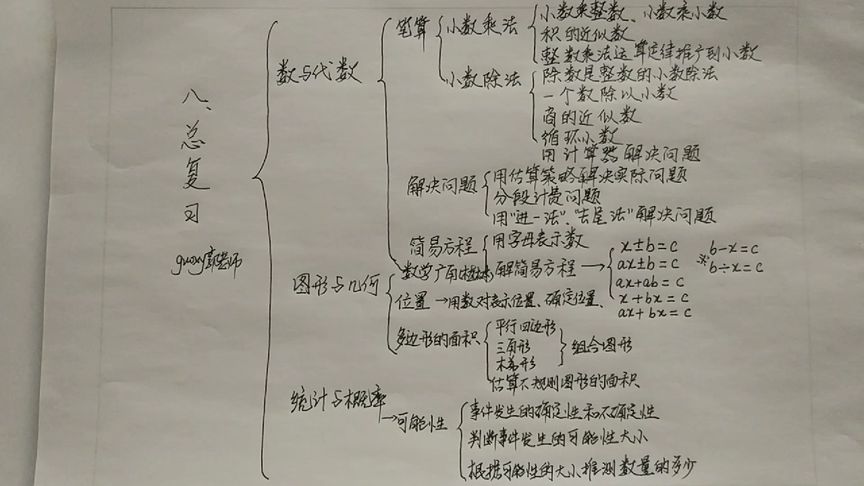 八、总复习
guoxy郭老师
数与代数
笔算
小数乘法
小数乘整数、小数乘小数
积的近似数
整数乘法运算定律推广到小数
小数除法
除数是整数的小数除法
一个数除以小数
商的近似数
循环小数
用计算器解决问题
解决问题
用估算策略解决实际问题
分段计费问题
用"进一法"、"去尾法"解决问题
简易方程
用字母表示数
解简易方程→
x±b=c
ax±b=c
ax+ab=c
x+bx=c
ax+bx=c
※
b-x=c
b÷x=c
数学广角(植树)
图形与几何
位置→用数对表示位置、确定位置、
多边形的面积
平行四边形
三角形
梯形
组合图形
估算不规则图形的面积
统计与概率
→可能性
事件发生的确定性和不确定性
判断事件发生的可能性大小
根据可能性的大小推测数量的多少